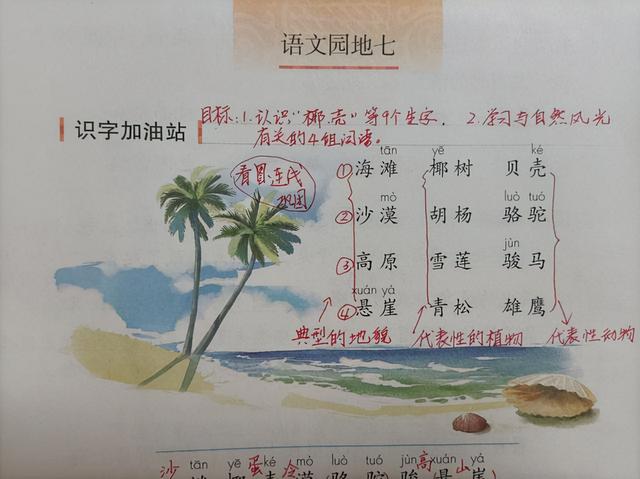 语文园地七
识字加油站
目标:1.认识“椰、壳”等9个生字. 2.学习与自然风光
有关的4组词语。
看图连线
巩固
tān yē ké
①海滩 椰树 贝壳
mò luò tuó
②沙漠 胡杨 骆驼
jùn
③高原 雪莲 骏马
xuán yá
④悬崖 青松 雄鹰
典型的地貌 代表性的植物 代表性动物
沙 tān yē 蛋 ké mò luò tuó jùn 高 xuán 山 yá